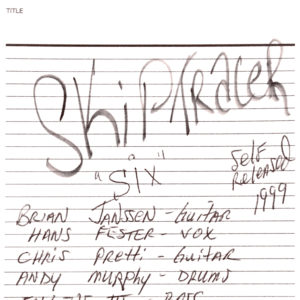 TITLE
Skiptracer
"SIX"
Self
Released
1999
BRIAN JANSSEN - GUITAR
HANS FESTER - VOX
CHRIS PRETTI - GUITAR
ANDY MURPHY - DRUMS
BASS